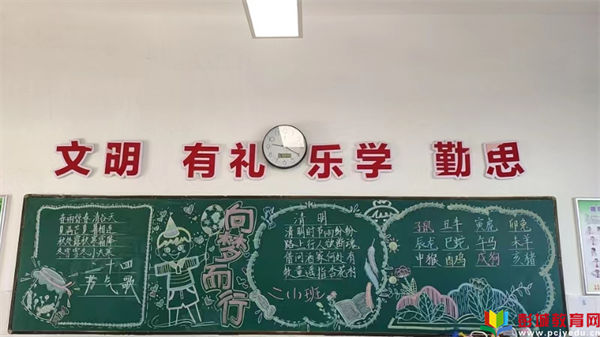 文明 有礼 乐学 勤忠
春雨惊春清谷天
夏满芒夏暑相连
秋处露秋寒霜降
二十四
节气歌
向梦而行
清明
清明时节雨纷纷
路上行人欲断魂
借问酒家何处有
牧童遥指杏花村
二(1)班
子鼠 丑牛 寅虎 卯兔
辰龙 巳蛇 午马 未羊
申猴 酉鸡 戌狗 亥猪
彭城教育网